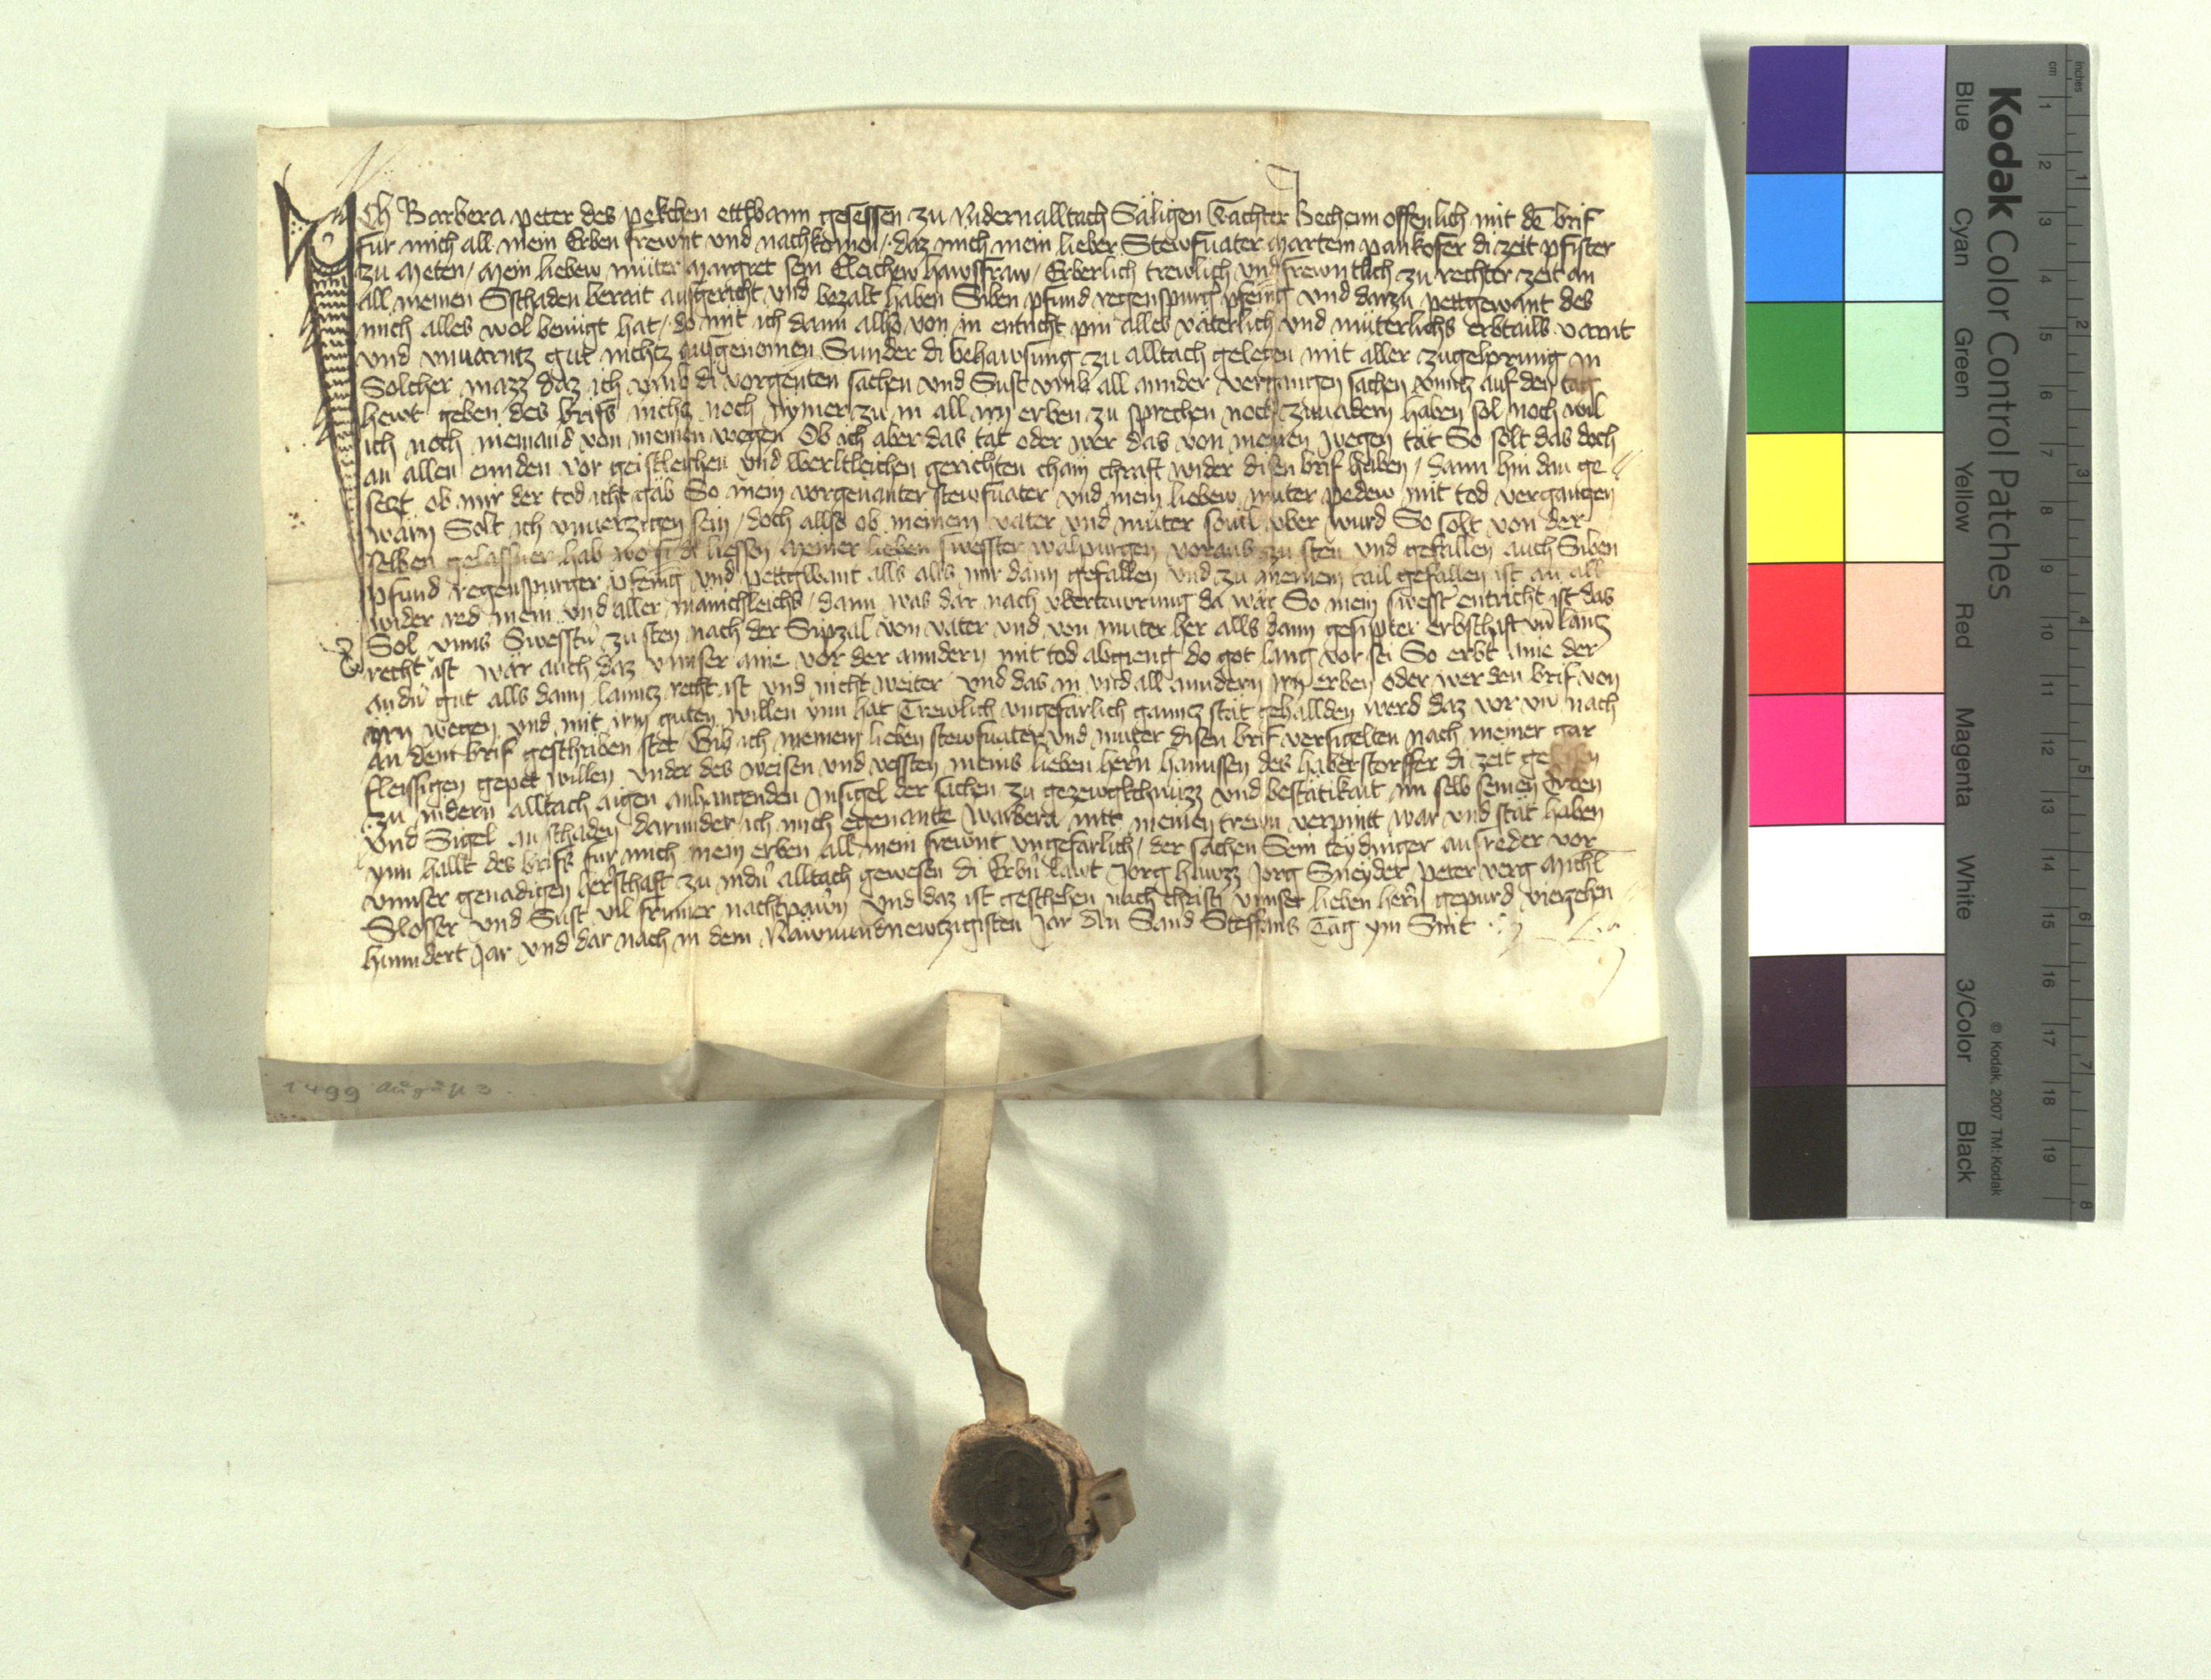 Ich Barbera peter des pekchen ettbann gesessen zu Nidernalltach Säligen Tachter Bechenn offenlich mit dē brif
für mich all mein Erben frewnt und nachkomen / daz mich mein lieber Stewfuater Martein pankofer di zeit pfister
zu Meten / Mein liebew müter Margret sein Eleichew hawsfraw / Erberlich trewlich und frewntlich zu rechter zeit an
all meinen Schaden berait ausgericht und bezalt haben Siben pfund regenspurg pfenig und darzu pettgewant des
mich alles wol benügt hat / do mit ich dann allso von in entricht pin alles väterlich und müterlichs erbtails varnt
und vnuarntz gut nichtz ausgenomen Sunder di behawsung zu alltach gelegen mit aller zugehorung in
Solcher mazz daz ich vmb di vorgenten sachen und Sust vmb all annder vergangen sachen vnntz auf den tag
hewt geben des brifs nichs noch nymer zu in all irn erben zu sprechen noch zuuadern haben sol noch wil
ich noch niemand von meinen wegen Ob ich aber das tät oder wer das von meinen wegen tät So solt das doch
an allen ennden vor geistleichen und werltleichen gerichten chain chraft wider disen brif haben / dann hin dan ge
setzt ob mir der tod icht gäb So mein vorgenanter stewfuater und mein liebew muter pedew mit tod vergangen
wärn Solt ich vnuerzigen sein / doch allso ob meinem vater und müter souil vber wurd So solt von der
selben gelassner hab wo si di liessen meiner lieben swesster walpurgen voraus zu sten und gefallen auch Siben
pfund regenspurger pfenig und pettgwant alls alls mir dann gefallen und zu meinem tail gefallen ist an all
wider red mein und aller mänichleichs / dann was dar nach vberteurung da wär So mein swesst entricht ist das
Sol vnns Swesstn̄ zu sten nach der Sipzal von vater und von muter her alls dann gesipter erbschaft vn̄ lantz
recht ist wär auch daz vnnser aine vor der anndern mit tod abgieng do got lang vor sei So erbt aine der
andn̄ gut alls dann lanntz recht ist und nicht weiter und das in und all anndern irn erben oder wer den brif von
irn wegen und mit irm guten willen ynn hat Trewlich ungefarlich ganntz stät gehallden werd daz vor vn̄ nach
an dem brif geschriben stet Gib ich meinem lieben stewfuater und muter disen brif versigelten nach meiner gar
fleissigen gepet willen vnder des weisen und vessten meins lieben hern̄ hannssen des haberstorffer di zeit
zu nidern alltach aigen anhangenden Insigel der sachen zu gezewgkchnüzz und bestätikait im selb seinen Erben
und Sigel an schaden darunder ich mich egenante Warbera mit meinen trewn verpintt war und stät haben
ynn hallt des brifs für mich mein erben all mein frewnt ungefarlich / der sachen Sein teydinger ausreder vor
vnnser genadigen herschaft zu nidn̄ alltach gewesen di Erbn̄ lawt Jorg hawzz Jorg Sneyder peter verg Michl
Slosser und Sust vil frumer nachtpawrn und daz ist geschehen nach christi vnnser lieben hern̄ gepurd vierzehen
hunndert Jar und dar nach in dem Näwnundnewtzigisten Jar An Sand Steffans Tag ym Snit
1499 August 3.
Kodak Color Control Patches
© Kodak, 2007 TM: Kodak
Blue Cyan Green Yellow Red Magenta White 3/Color Black
cm 1 2 3 4 5 6 7 8 9 10 11 12 13 14 15 16 17 18 19
inches 1 2 3 4 5 6 7 8